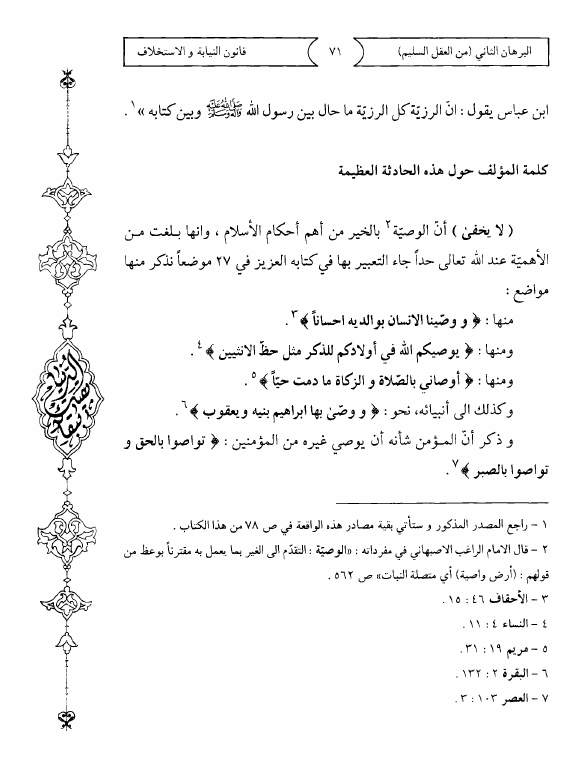 البرهان الثاني (من العقل السليم) ٧١ قانون النيابة و الاستخلاف
ابن عباس يقول : انّ الرزيّة كل الرزيّة ما حال بين رسول الله ﷺ وبين كتابه »١ .
كلمة المؤلف حول هذه الحادثة العظيمة
( لا يخفىٰ ) أنّ الوصيّة٢ بالخير من أهم أحكام الأسلام ، وانها بـلغت مـن
الأهميّة عند الله تعالى حداً جاء التعبير بها في كتابه العزيز في ٢٧ موضعاً نذكر منها
مواضع :
منها : ﴿ و وصّينا الانسان بوالديه احساناً ﴾٣ .
ومنها : ﴿ يوصيكم الله في أولادكم للذكر مثل حظّ الانثيين ﴾٤ .
ومنها : ﴿ أوصاني بالصّلاة و الزكاة ما دمت حيّاً ﴾٥ .
وكذلك الى أنبيائه، نحو : ﴿ و وصّىٰ بها ابراهيم بنيه ويعقوب ﴾٦ .
و ذكر أنّ المـؤمن شأنه أن يوصي غيره من المؤمنين : ﴿ تواصوا بالحق و
تواصوا بالصبر ﴾٧ .
١ - راجع المصدر المذكور و ستأتي بقية مصادر هذه الواقعة في ص ٧٨ من هذا الكتاب .
٢ - قال الامام الراغب الاصبهاني في مفرداته : «الوصيّة : التقدّم الى الغير بما يعمل به مقترناً بوعظ من
قولهم : (أرض واصية) أي متصلة النبات» ص ٥٦٢ .
٣ - الأحقاف ٤٦ : ١٥ .
٤ - النساء ٤ : ١١ .
٥ - مريم ١٩ : ٣١ .
٦ - البقرة ٢ : ١٣٢ .
٧ - العصر ١٠٣ : ٣ .